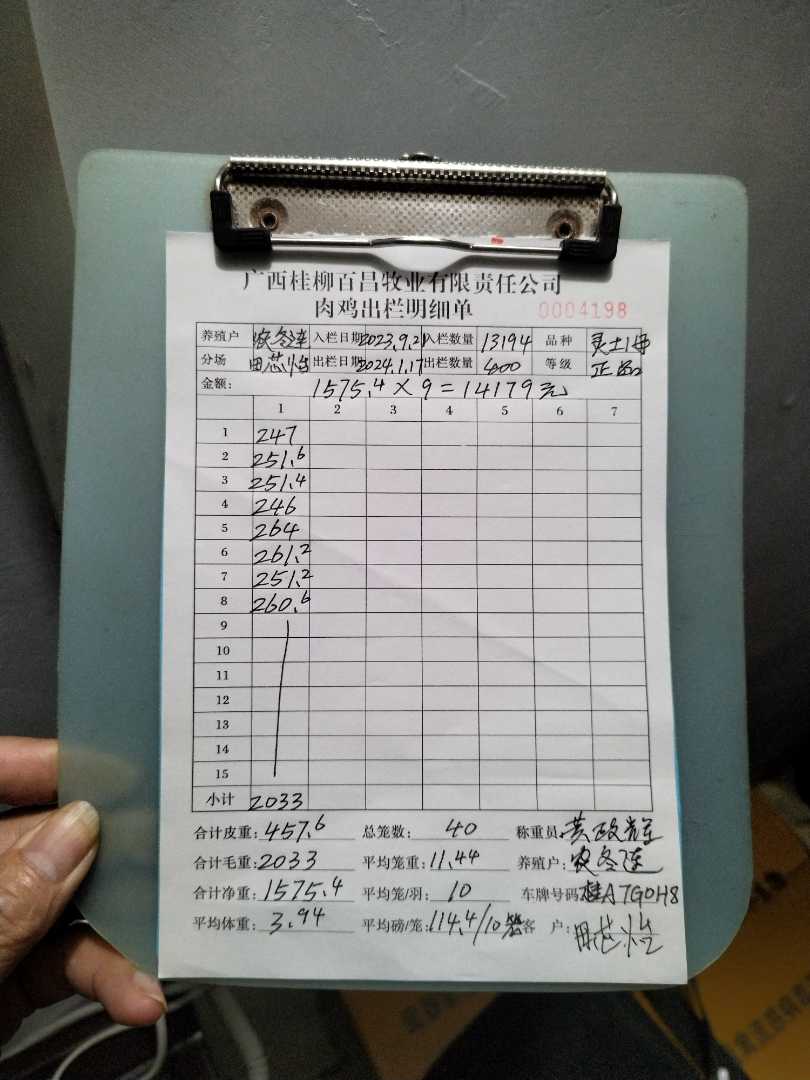 广西桂柳百昌牧业有限责任公司
肉鸡出栏明细单 0004198
养殖户 农冬连 入栏日期 2023.9.21 入栏数量 13194 品种 灵土1号
分场 田芯怡 出栏日期 2024.1.17 出栏数量 400 等级 正品
金额: 1575.4 × 9 = 14179元
1 2 3 4 5 6 7
1 247
2 251.6
3 251.4
4 246
5 264
6 261.2
7 251.2
8 260.6
9
10
11
12
13
14
15
小计 2033
合计皮重: 457.6 总笼数: 40 称重员: 黄政辉
合计毛重: 2033 平均笼重: 11.44 养殖户: 农冬连
合计净重: 1575.4 平均笼/羽: 10 车牌号码: 桂A7G0H8
平均体重: 3.94 平均磅/笼: 114.4/10笼 客户: 田芯怡